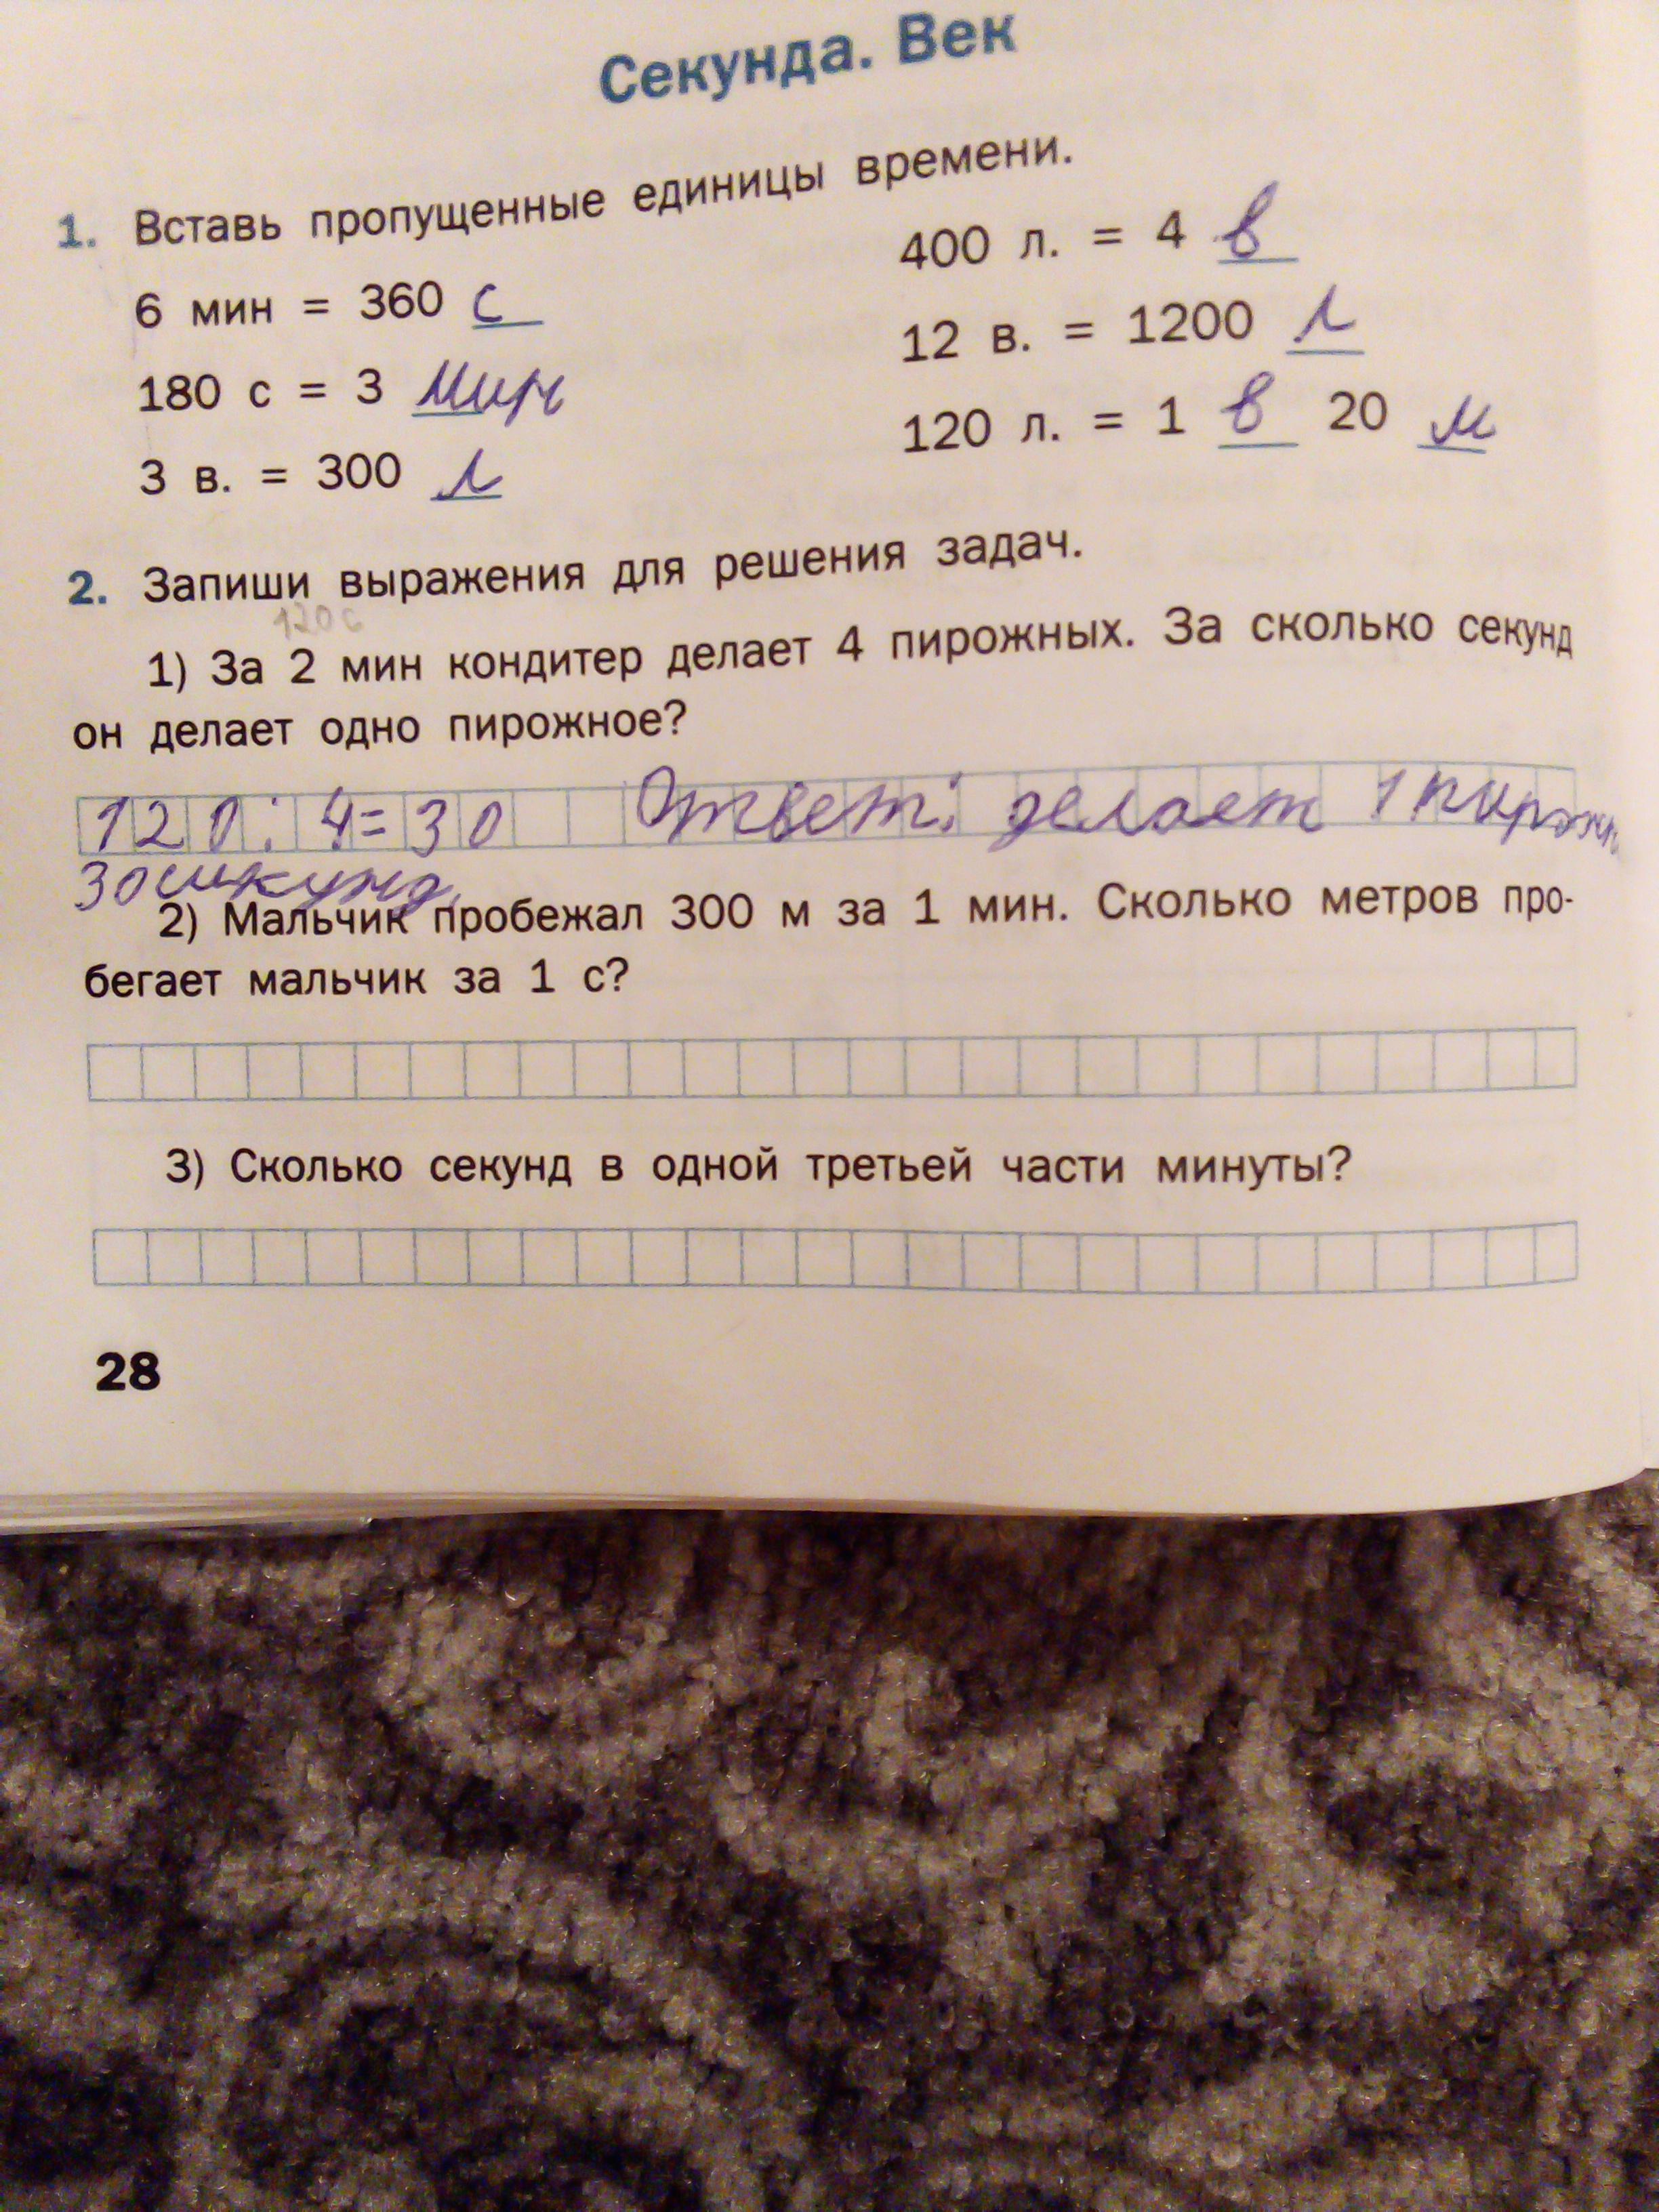 Секунда. Век
1. Вставь пропущенные единицы времени.
6 мин = 360 с
180 с = 3 мин
3 в. = 300 л
400 л. = 4 в
12 в. = 1200 л
120 л. = 1 в 20 м
2. Запиши выражения для решения задач.
120 с
1) За 2 мин кондитер делает 4 пирожных. За сколько секунд
он делает одно пирожное?
120 : 4 = 30 Ответ: делает 1 пирожн
30 секунд.
2) Мальчик пробежал 300 м за 1 мин. Сколько метров про-
бегает мальчик за 1 с?
3) Сколько секунд в одной третьей части минуты?
28